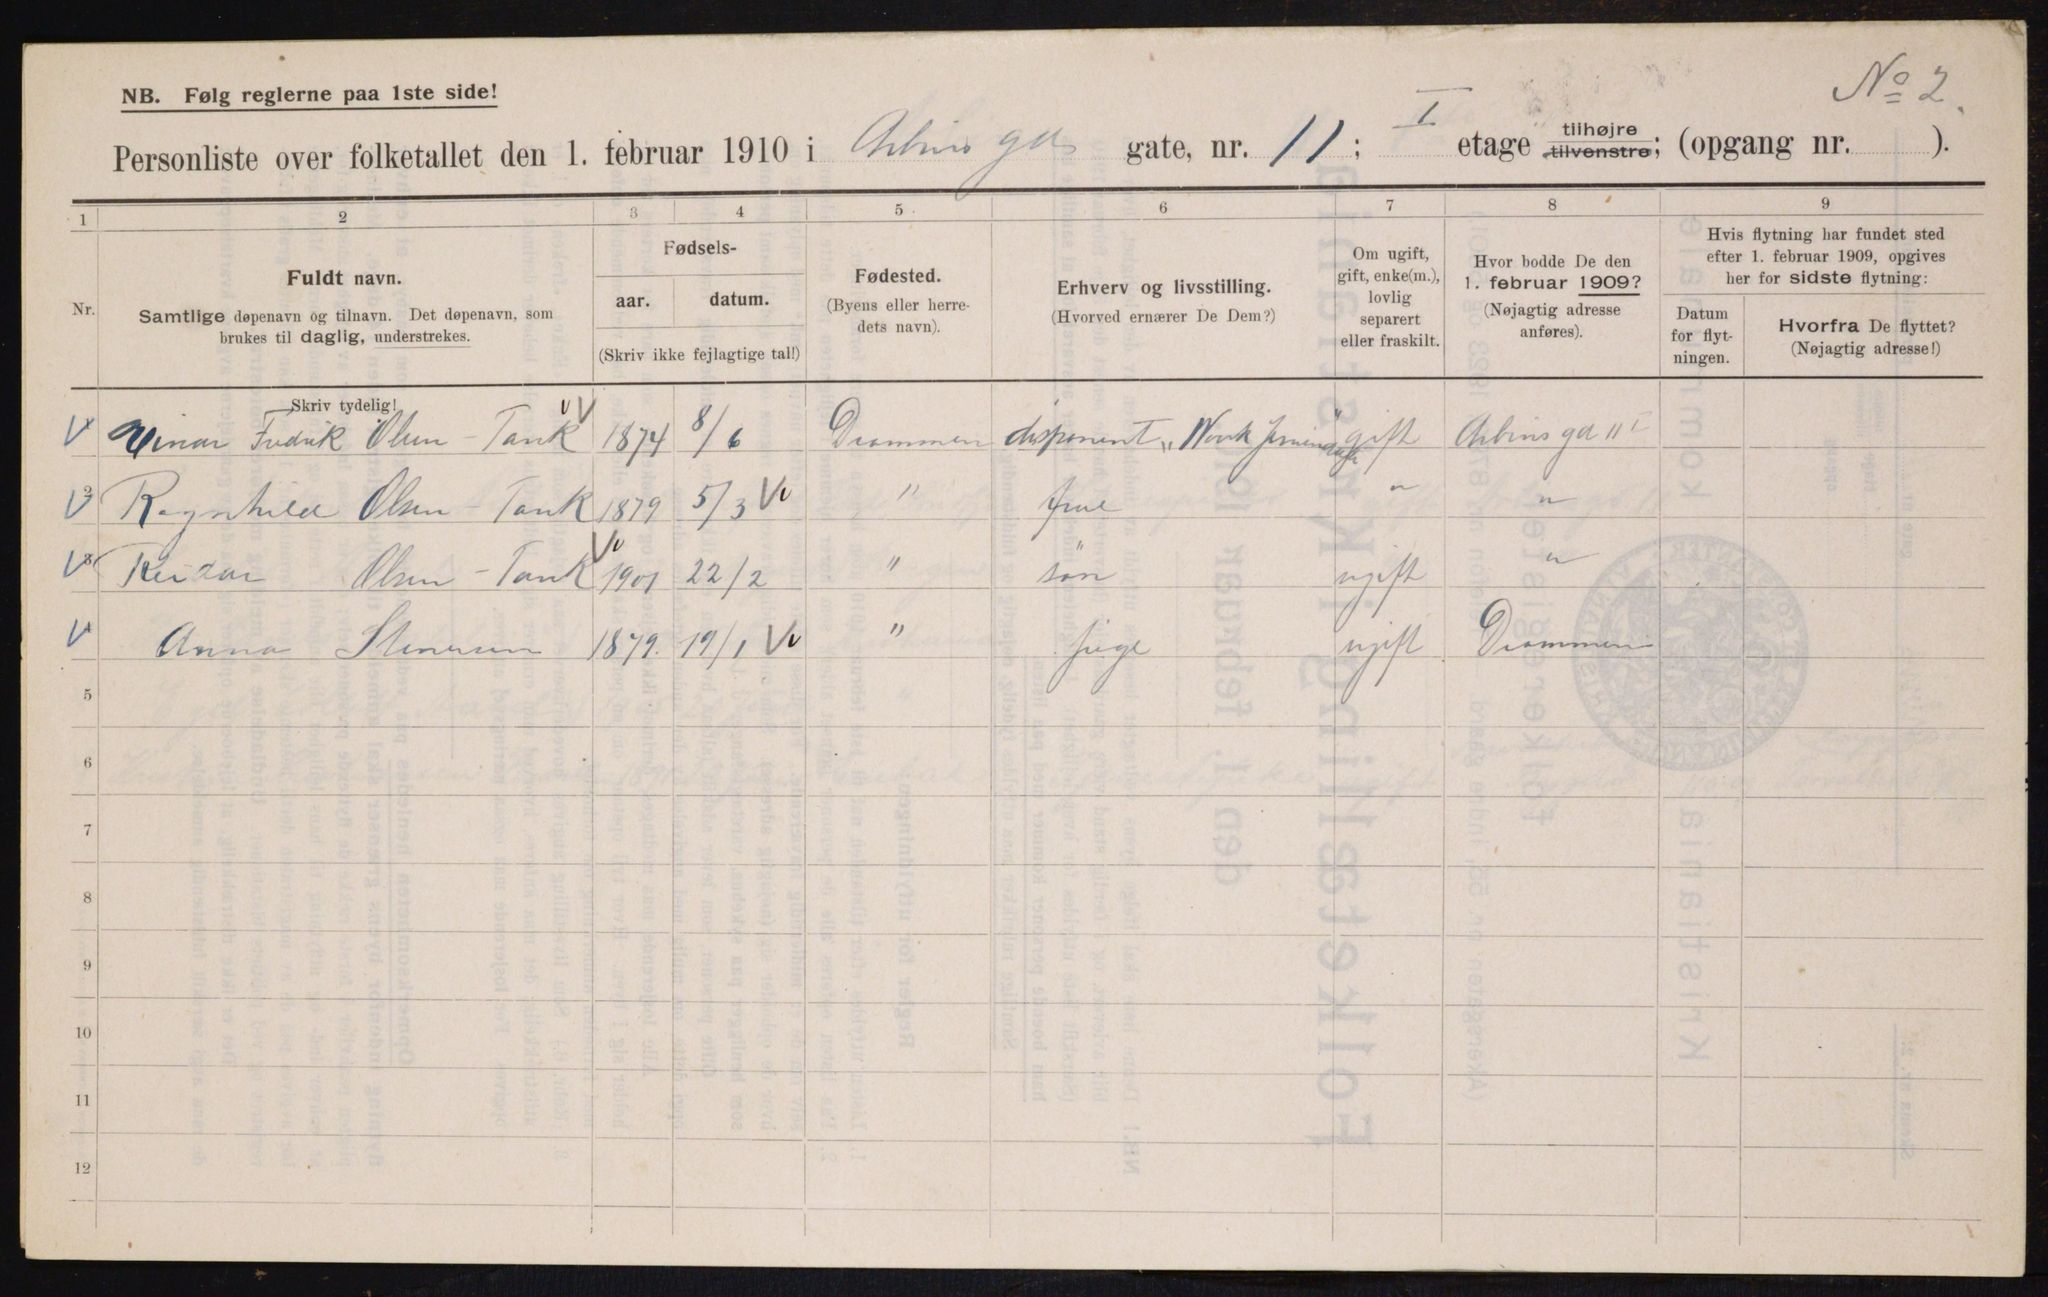 No 2.
NB. Følg reglerne paa 1ste side!
Personliste over folketallet den 1. februar 1910 i Arbins gd gate, nr. 11; I etage tilhøjre tilvenstre; (opgang nr. ).
1 2 3 4 5 6 7 8 9
Nr.
Fuldt navn.
Samtlige døpenavn og tilnavn. Det døpenavn, som
brukes til daglig, understrekes.
Fødsels-
aar. datum.
(Skriv ikke fejlagtige tal!)
Fødested.
(Byens eller herre-
dets navn).
Erhverv og livsstilling.
(Hvorved ernærer De Dem?)
Om ugift,
gift, enke(m.),
lovlig
separert
eller fraskilt.
Hvor bodde De den
1. februar 1909?
(Nøjagtig adresse
anføres).
Hvis flytning har fundet sted
efter 1. februar 1909, opgives
her for sidste flytning:
Datum
for flyt-
ningen.
Hvorfra De flyttet?
(Nøjagtig adresse!)
Skriv tydelig!
Einar Fredrik Olsen-Tank 1874 8/6 Drammen disponent gift Arbins gd 11 I
2 Ragnhild Olsen-Tank 1879 5/3 " frue " "
3 Reidar Olsen-Tank 1901 22/2 " søn ugift "
Anna Stenersen 1879. 19/1 " pige ugift Drammen
5
6
7
8
9
10
11
12